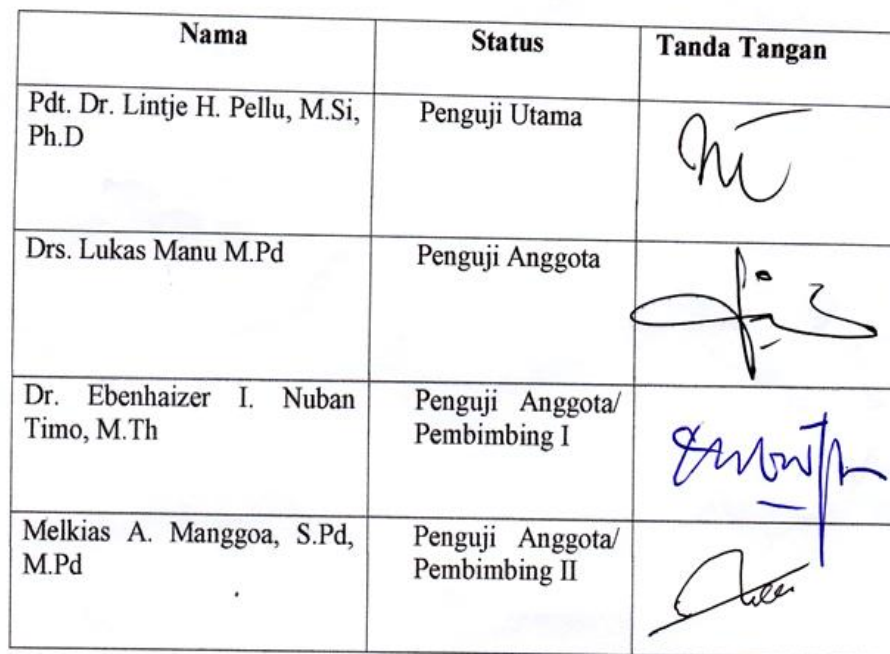 Nama Status Tanda Tangan
Pdt. Dr. Lintje H. Pellu, M.Si, Penguji Utama
Ph.D
Drs. Lukas Manu M.Pd Penguji Anggota
Dr. Ebenhaizer I. Nuban Penguji Anggota/
Timo, M.Th Pembimbing I
Melkias A. Manggoa, S.Pd, Penguji Anggota/
M.Pd Pembimbing II